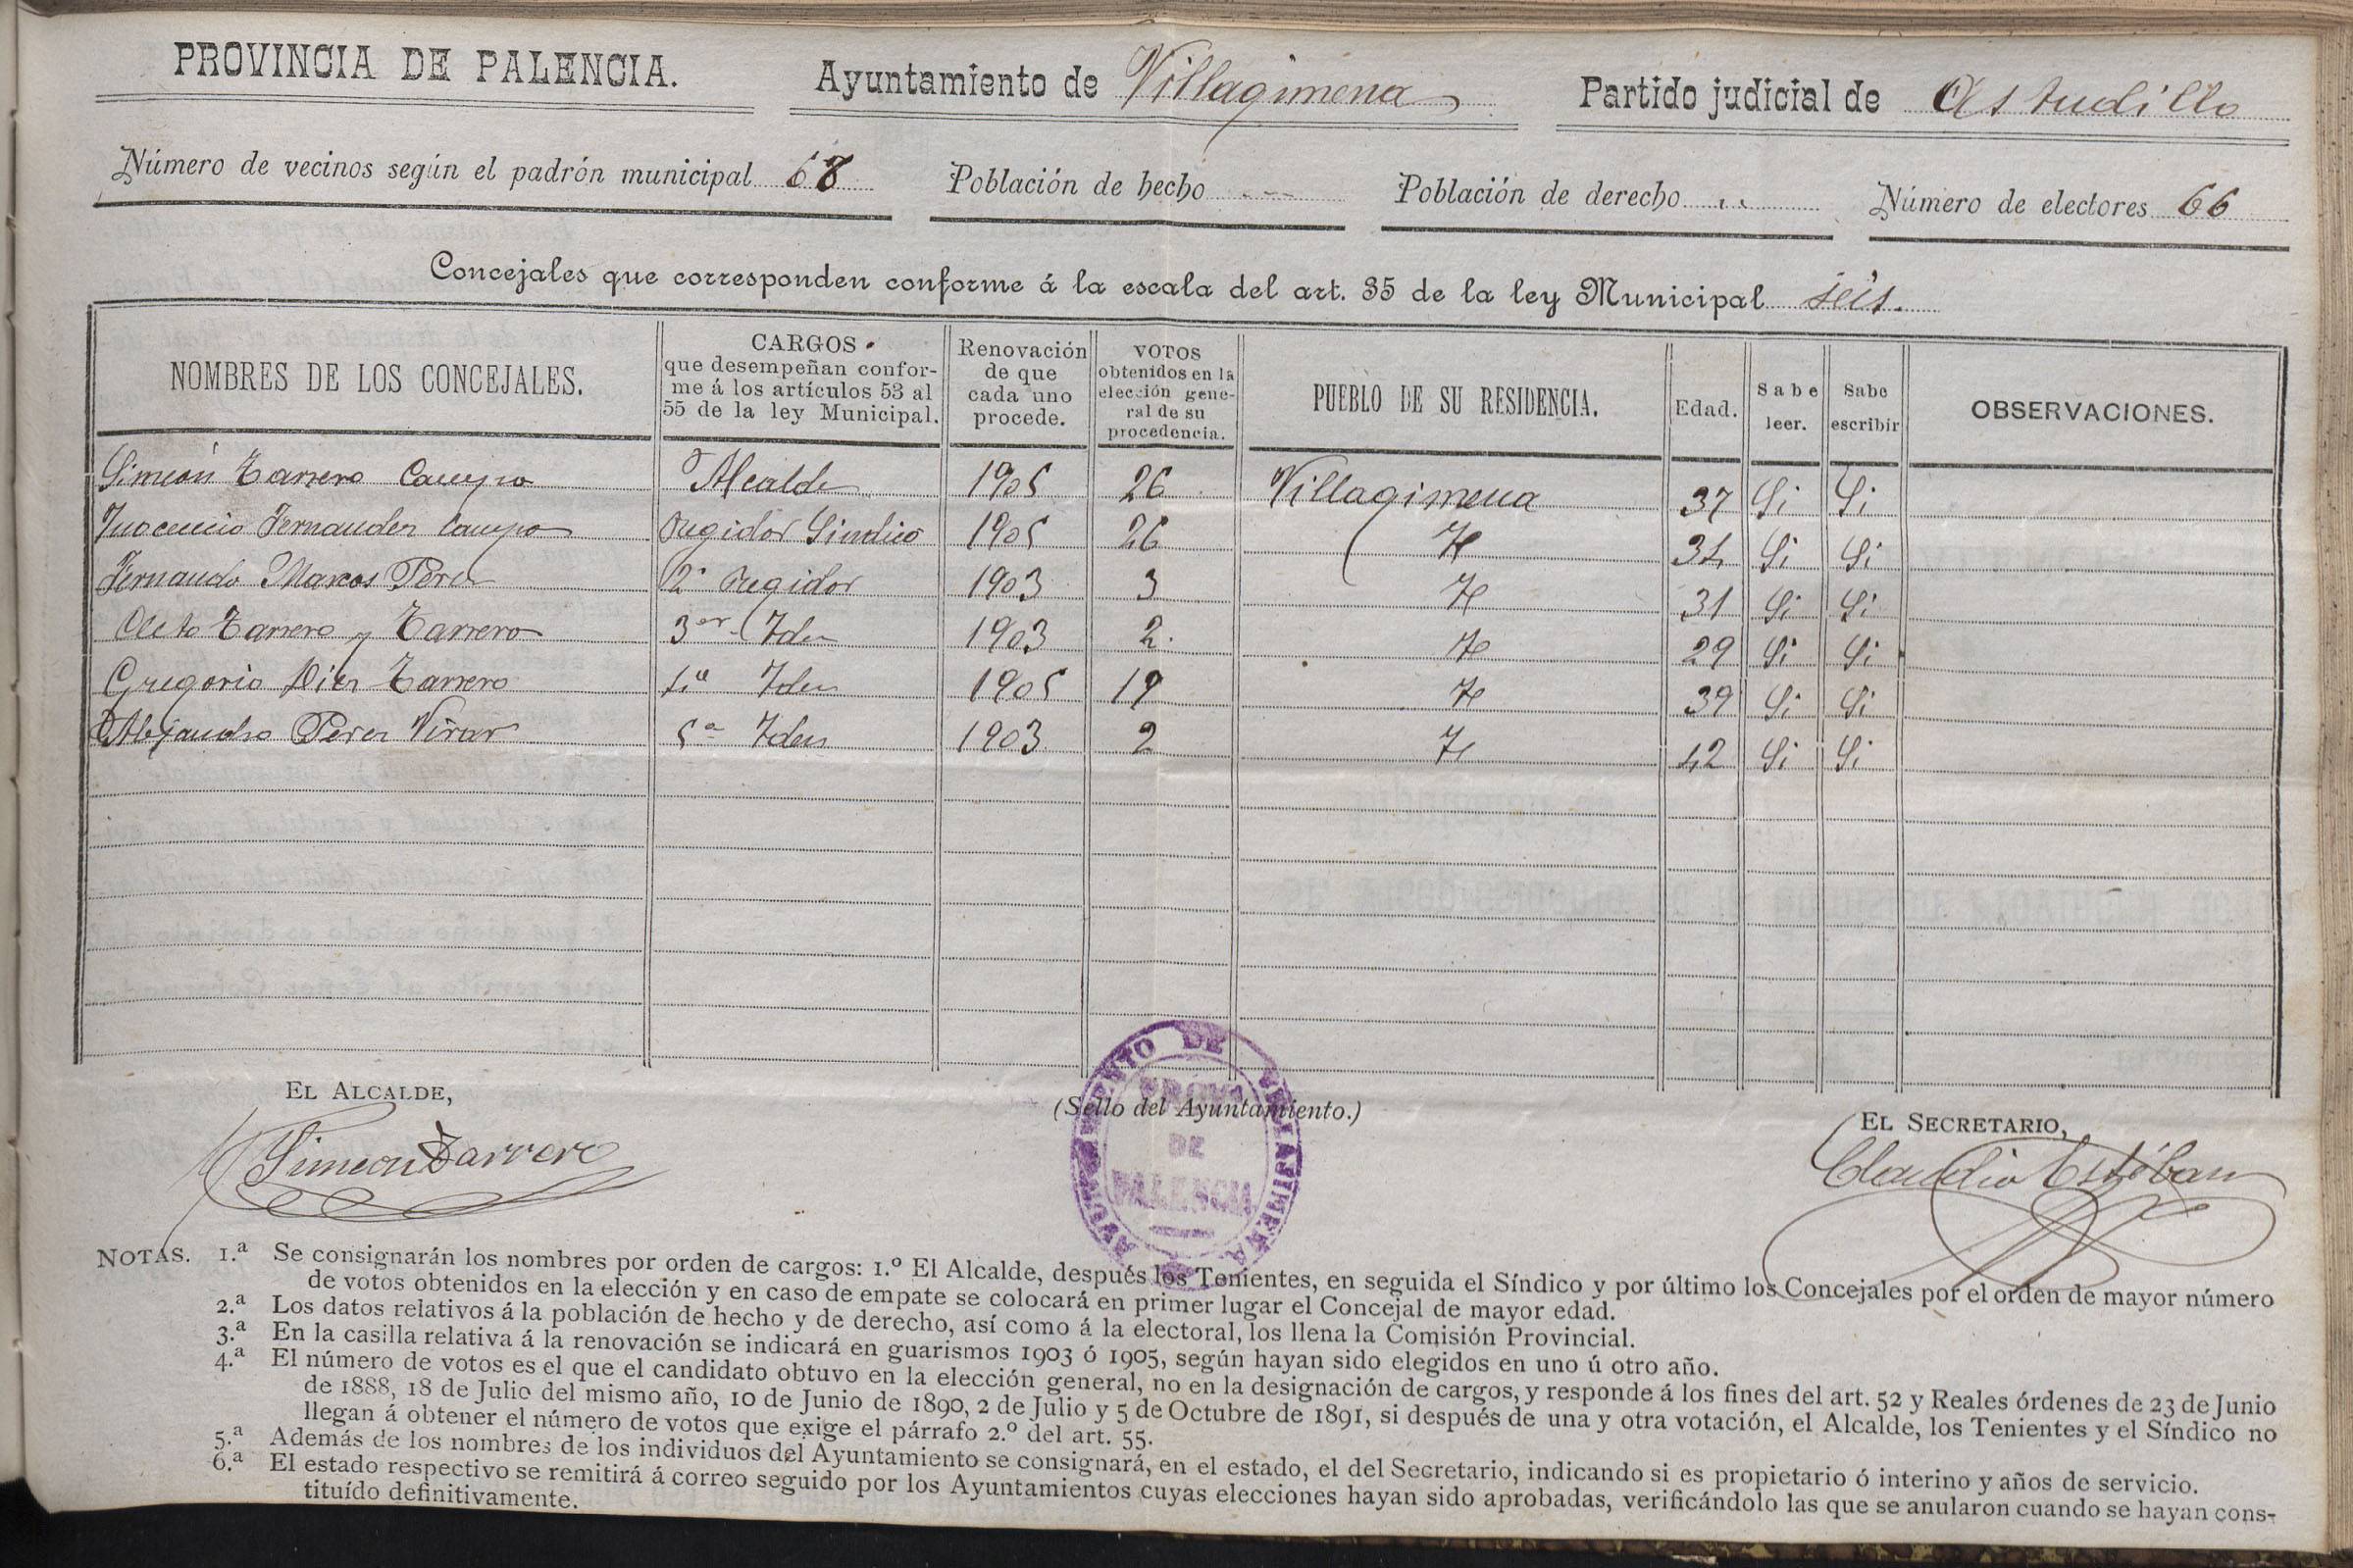 PROVINCIA DE PALENCIA. Ayuntamiento de Villagimena Partido judicial de Astudillo
Número de vecinos según el padrón municipal 68 Población de hecho Población de derecho Número de electores 66
Concejales que corresponden conforme á la escala del art. 35 de la ley Municipal seis.
NOMBRES DE LOS CONCEJALES.
CARGOS
que desempeñan confor-
me á los artículos 53 al
55 de la ley Municipal.
Renovación
de que
cada uno
procede.
VOTOS
obtenidos en la
elección gene-
ral de su
procedencia.
PUEBLO DE SU RESIDENCIA.
Edad.
Sabe
leer.
Sabe
escribir
OBSERVACIONES.
Simeón Tarrero Campo Alcalde 1905 26 Villagimena 37 Si Si
Inocencio Fernandez Campo Regidor Sindico 1905 26 Id 34 Si Si
Fernando Marcos Perez 2º Regidor 1903 3 Id 31 Si Si
Cleto Tarrero y Tarrero 3er Iden 1903 2 Id 29 Si Si
Gregorio Diez Tarrero 4º Iden 1905 19 Id 39 Si Si
Alejandro Perez 5º Iden 1903 2 Id 42 Si Si
EL ALCALDE,
Simeon Tarrero
(Sello del Ayuntamiento.)
AYUNTAMIENTO DE VILLAJIMENA
PROVA
DE
PALENCIA
EL SECRETARIO,
Claudio Estéban
NOTAS. 1.ª Se consignarán los nombres por orden de cargos: 1.º El Alcalde, después los Tenientes, en seguida el Síndico y por último los Concejales por el orden de mayor número
de votos obtenidos en la elección y en caso de empate se colocará en primer lugar el Concejal de mayor edad.
2.ª Los datos relativos á la población de hecho y de derecho, así como á la electoral, los llena la Comisión Provincial.
3.ª En la casilla relativa á la renovación se indicará en guarismos 1903 ó 1905, según hayan sido elegidos en uno ú otro año.
4.ª El número de votos es el que el candidato obtuvo en la elección general, no en la designación de cargos, y responde á los fines del art. 52 y Reales órdenes de 23 de Junio
de 1888, 18 de Julio del mismo año, 10 de Junio de 1890, 2 de Julio y 5 de Octubre de 1891, si después de una y otra votación, el Alcalde, los Tenientes y el Síndico no
llegan á obtener el número de votos que exige el párrafo 2.º del art. 55.
5.ª Además de los nombres de los individuos del Ayuntamiento se consignará, en el estado, el del Secretario, indicando si es propietario ó interino y años de servicio.
6.ª El estado respectivo se remitirá á correo seguido por los Ayuntamientos cuyas elecciones hayan sido aprobadas, verificándolo las que se anularon cuando se hayan cons-
tituído definitivamente.